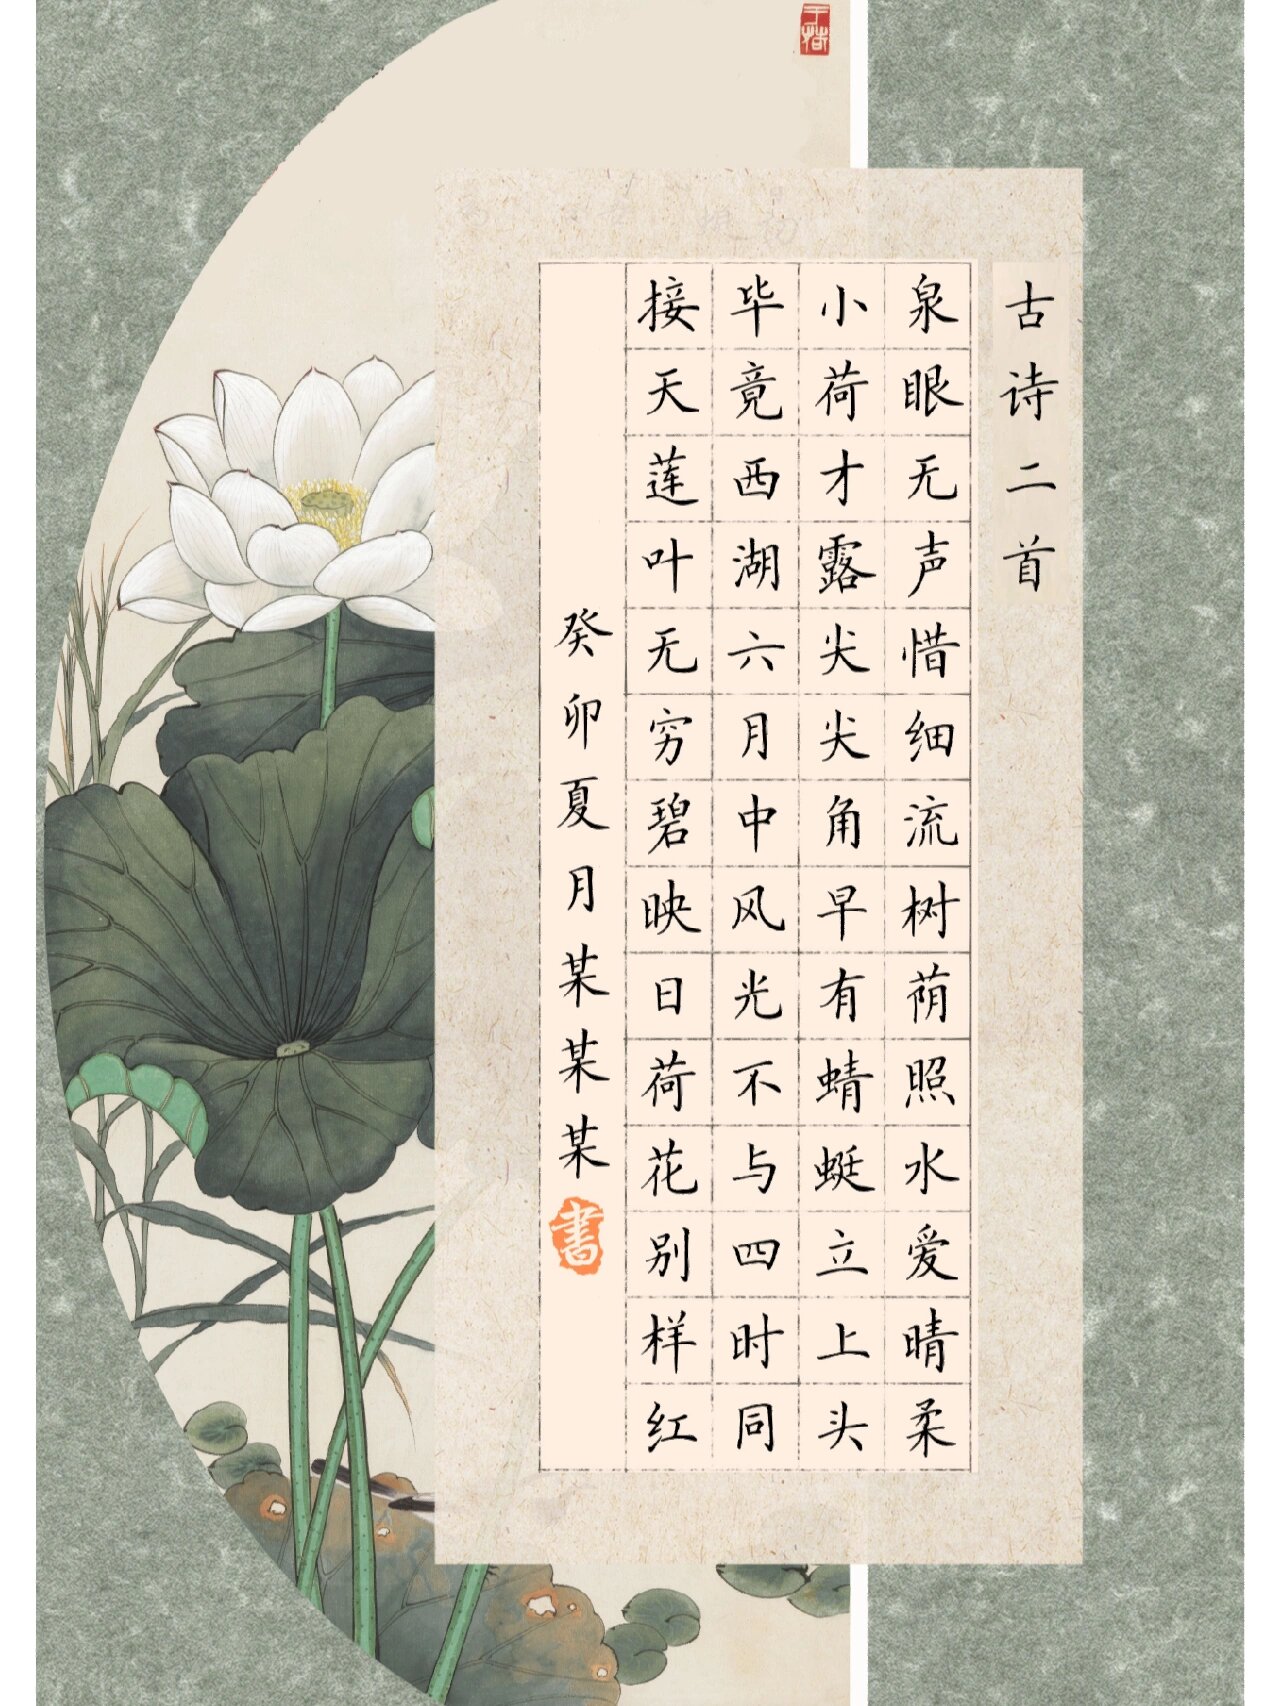 古诗二首
泉眼无声惜细流树荫照水爱晴柔
小荷才露尖尖角早有蜻蜓立上头
毕竟西湖六月中风光不与四时同
接天莲叶无穷碧映日荷花别样红
癸卯夏月某某某
書